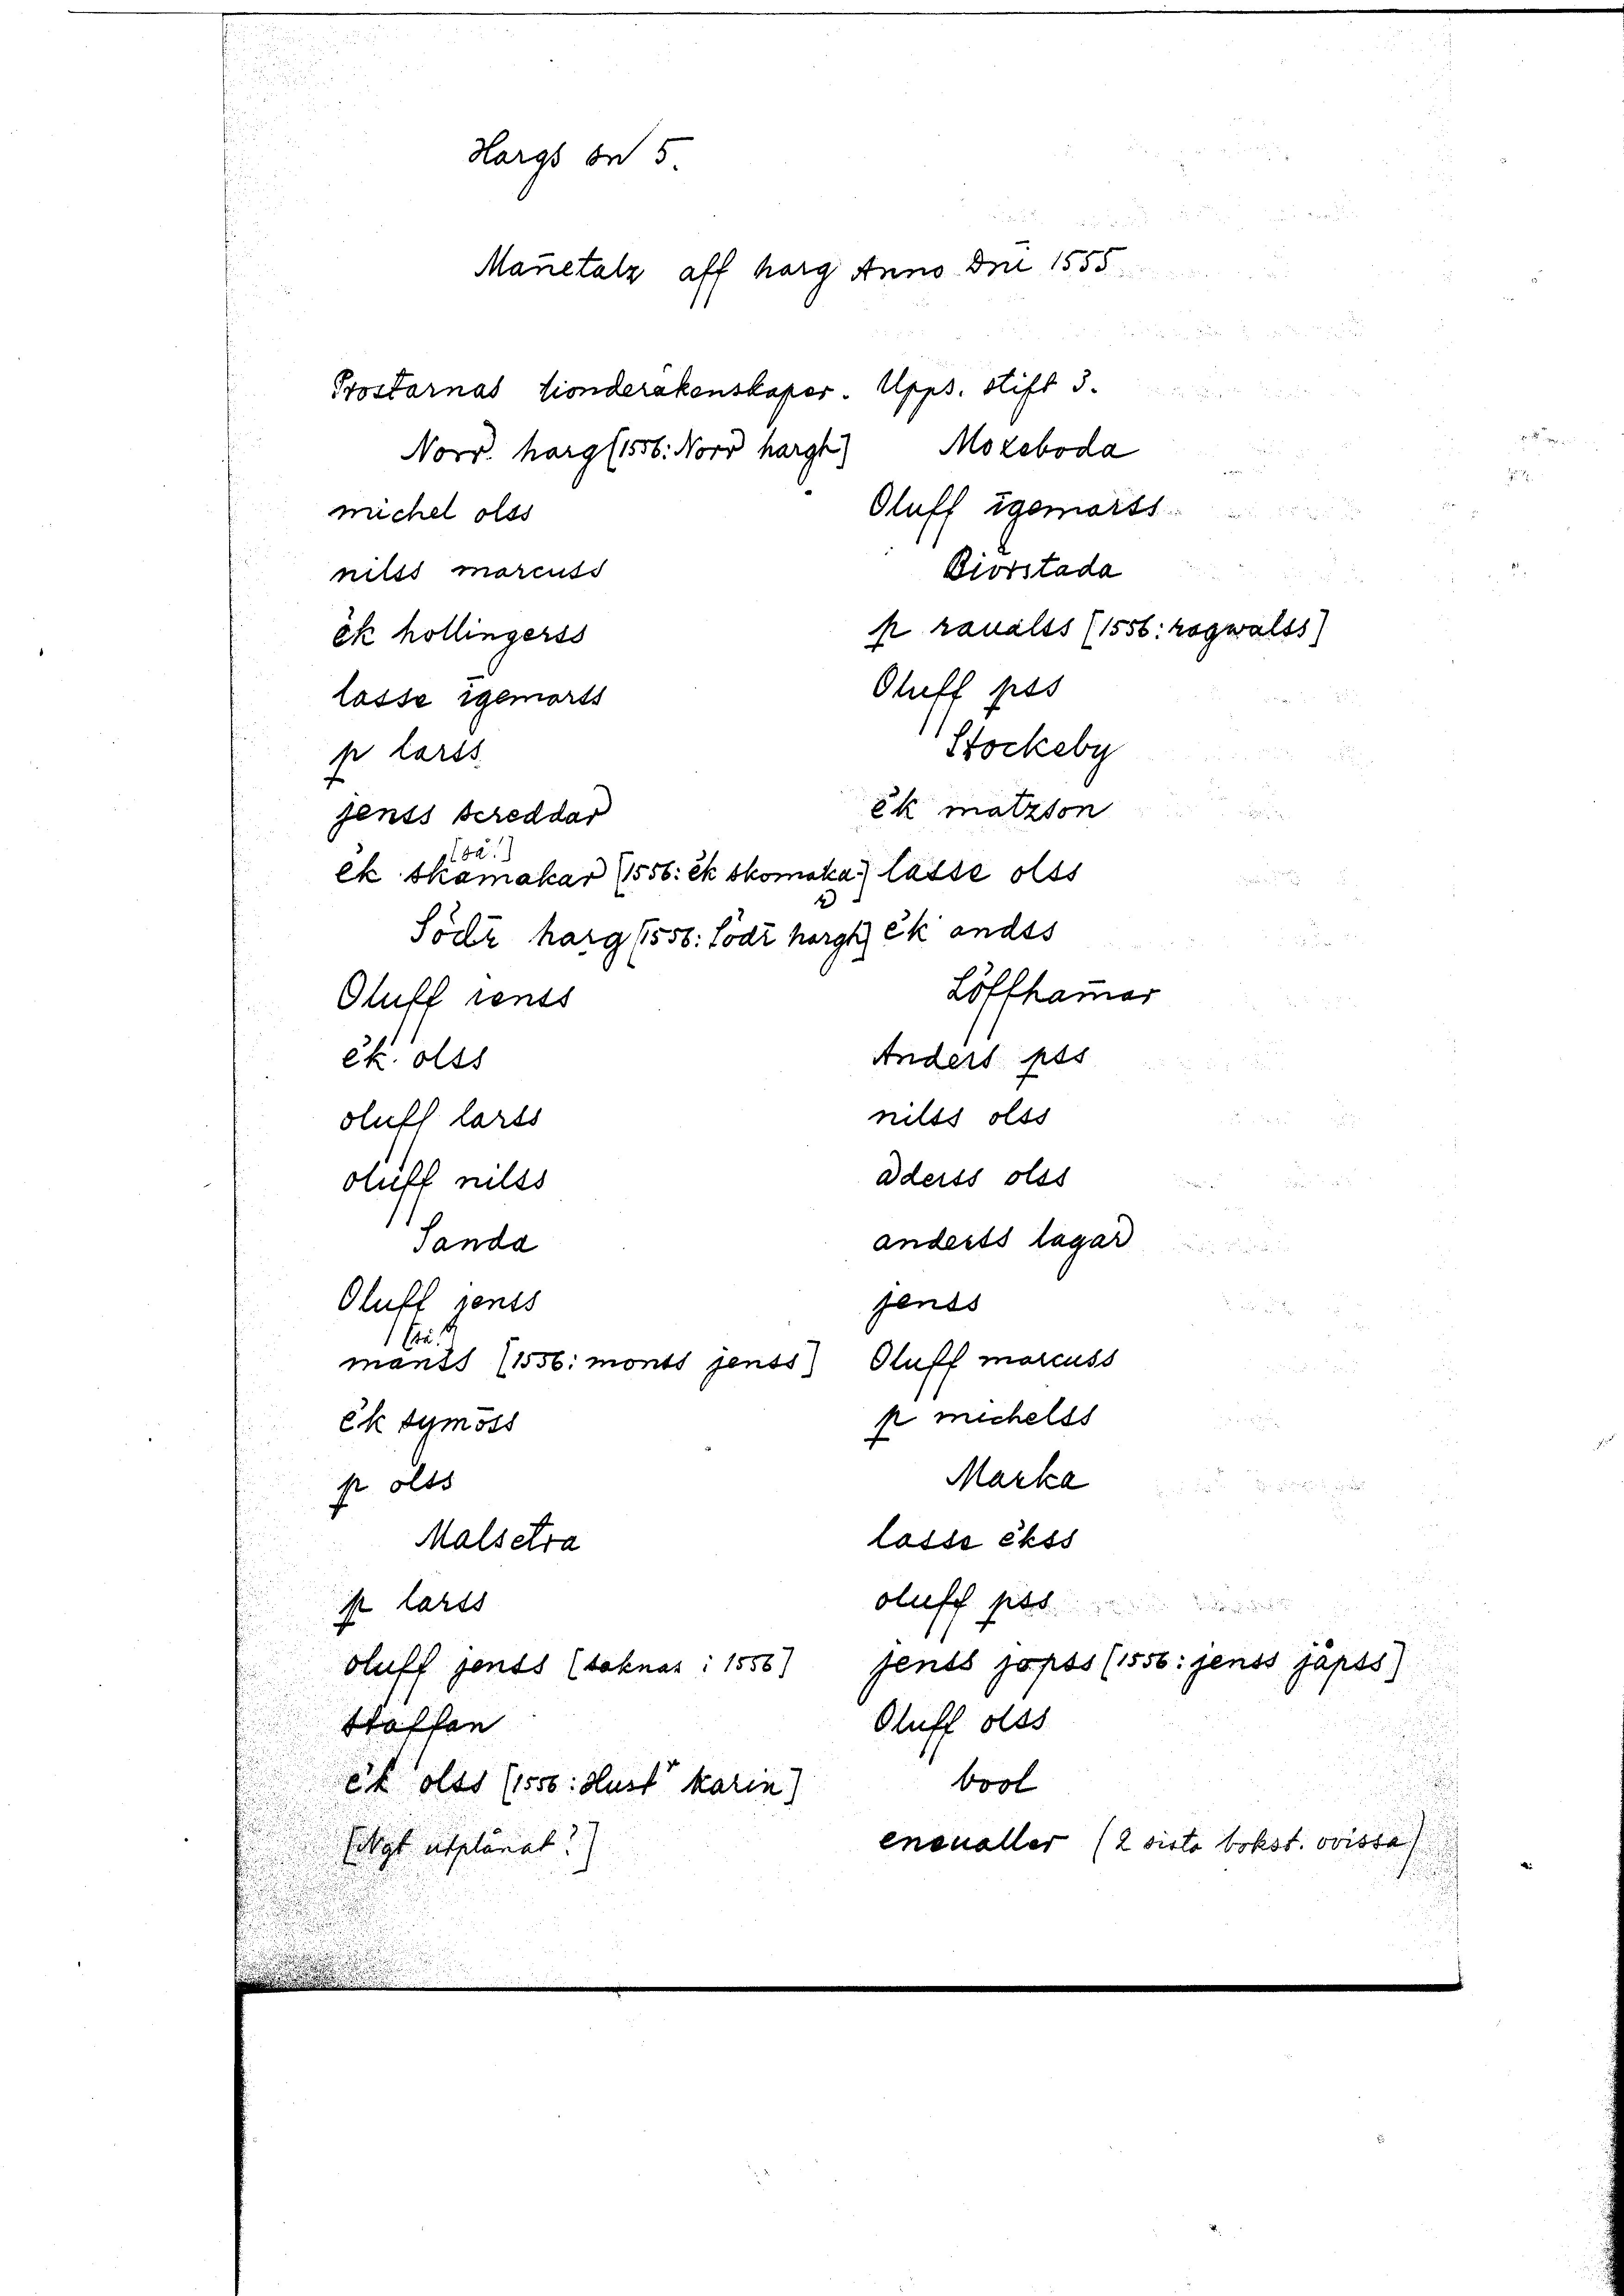 Hargs sn 5.
Mañetalz aff harg Anno Dni 1555
Prostarnas tionderäkenskaper. Upps. stift 3.
Norr harg [1556: Norr hargh]
michel olss
nilss marcuss
ek hollingerss
lasse igemarss
p larss
jenss screddar
[så!]
ek skamakar [1556: ek skomaka]
Södr harg [1556: Södr hargh]
Oluff ienss
ek olss
oluff larss
oluff nilss
Sanda
Oluff jenss
[så!]
manss [1556: monss jenss]
ek symoss
p olss
Malsetra
p larss
oluff jenss [saknas i 1556]
staffan
ek olss [1556: Hustr karin]
[Ngt utplånat?]
Mozeboda
Oluff igemarss
Biorstada
p raualss [1556: ragwalss]
Oluff pss
Stockeby
ek matzson
lasse olss
ek andss
Löffham̄ar
Anders pss
nilss olss
aderss olss
anderss lagar
jenss
Oluff marcuss
p michelss
Marka
lasse ekss
oluff pss
jenss jopss [1556: jenss jäpss]
Oluff olss
bool
eneualler (2 sista bokst. ovissa)